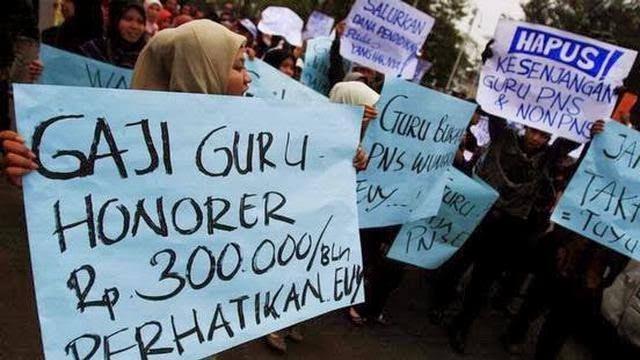 GAJI GURU
HONORER
Rp. 300.000/BLN
PERHATIKAN EUY
SALURKAN
DANA PENDIDIKAN
HAPUS!
KESENJANGAN
GURU PNS
& NONPNS
GURU BUKAN
PNS
EUY...
GURU
PNS
JA
TAK
= TUYU